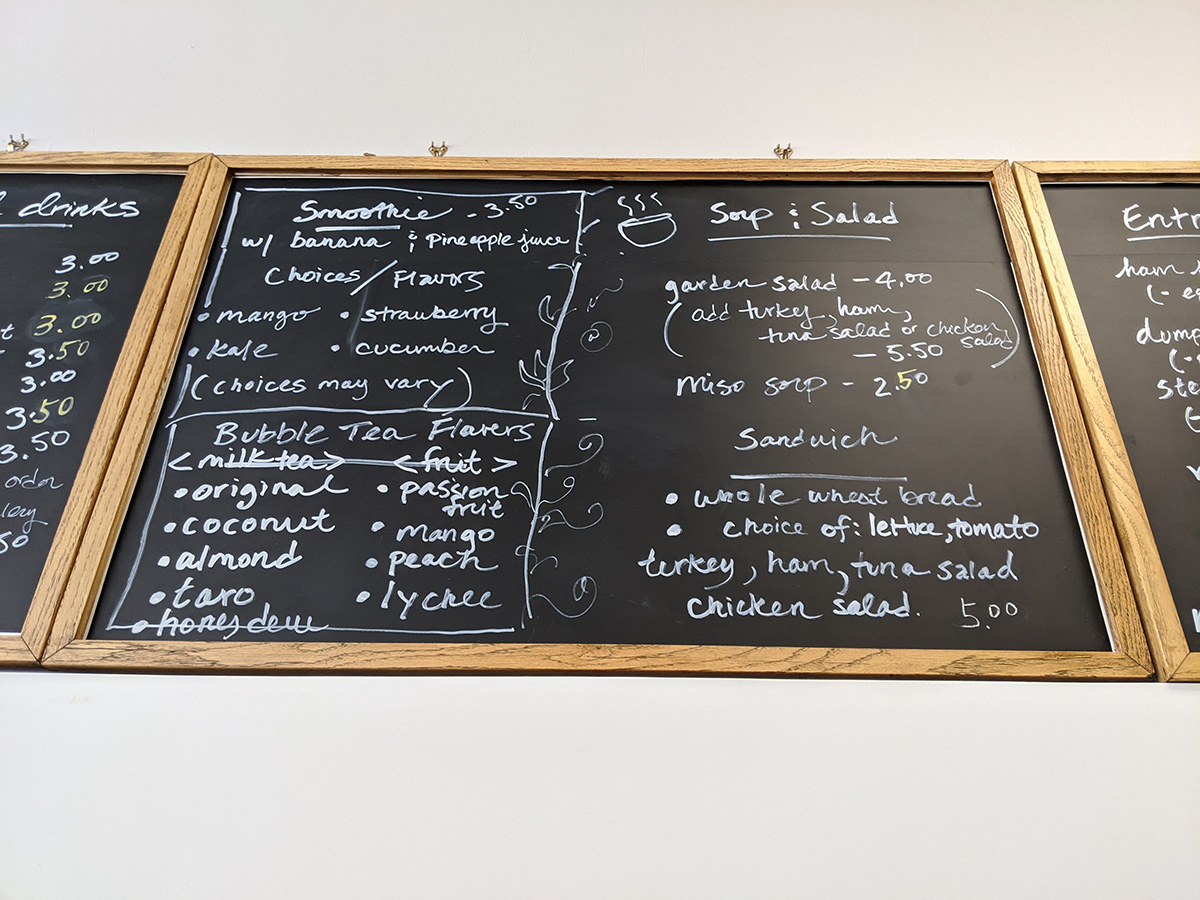 drinks
3.00
3.00
3.00
3.50
3.00
3.50
3.50
order
50
Smoothie - 3.50
w/ banana & Pineapple juice
Choices / Flavors
• mango • strawberry
• kale • cucumber
(choices may vary)
Bubble Tea Flavors
<milk tea> <fruit>
• original • passion fruit
• coconut • mango
• almond • peach
• taro • lychee
• honeydew
Soup & Salad
garden salad - 4.00
(add turkey, ham,
tuna salad or chicken salad)
- 5.50
miso soup - 2.50
Sandwich
• whole wheat bread
• choice of: lettuce, tomato
turkey, ham, tuna salad
chicken salad. 5.00
Entr
ham
(-
dump
(-
ste
(-